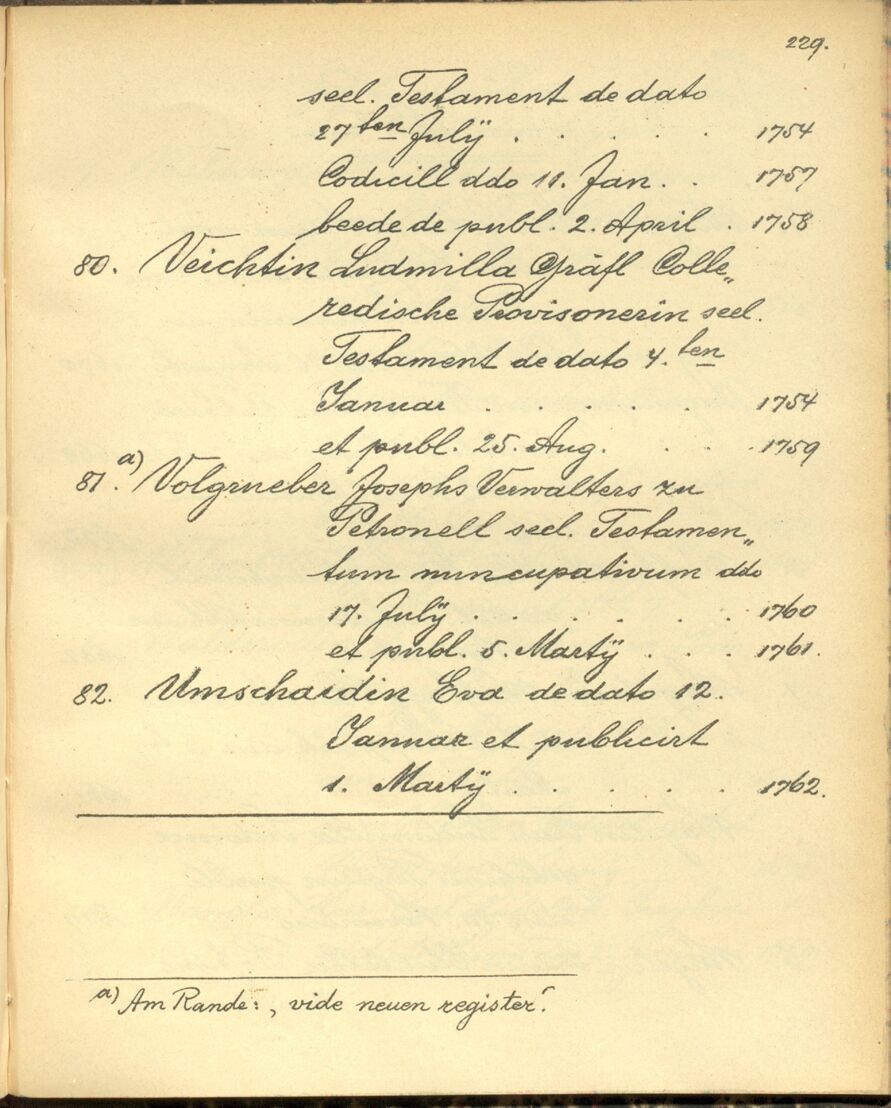 229.
seel. Testament de dato
27ten Julÿ . . . . . 1754
Codicill ddo 11. Jan. . 1757
beede de publ. 2. April . 1758
80. Veichtin Ludmilla Gräfl Colle„
redische Provisonerin seel.
Testament de dato 4.ten
Januar . . . . . 1754
et publ. 25. Aug. . . . 1759
81.a) Volgrueber Josephs Verwalters zu
Petronell seel. Testamen„
tum nuncupativum ddo
17. Julÿ . . . . . . 1760
et publ. 5. Martÿ . . . 1761.
82. Umschaidin Eva de dato 12.
Januar et publicirt
1. Martÿ . . . . . 1762.
a) Am Rande: „vide neuen register“.